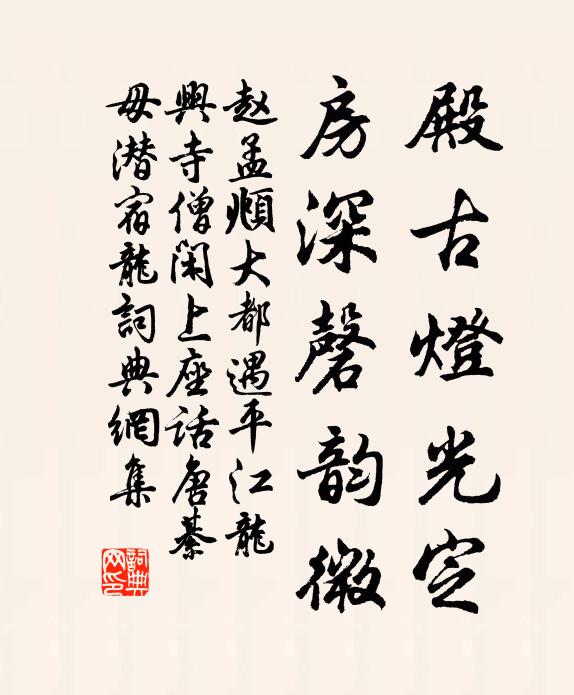 殿古燈光定
房深磬韵微
赵孟頫大都遇平江龍
興寺僧閑上座話唐綦
毋潜宿龍詞典網集
詞典
网印